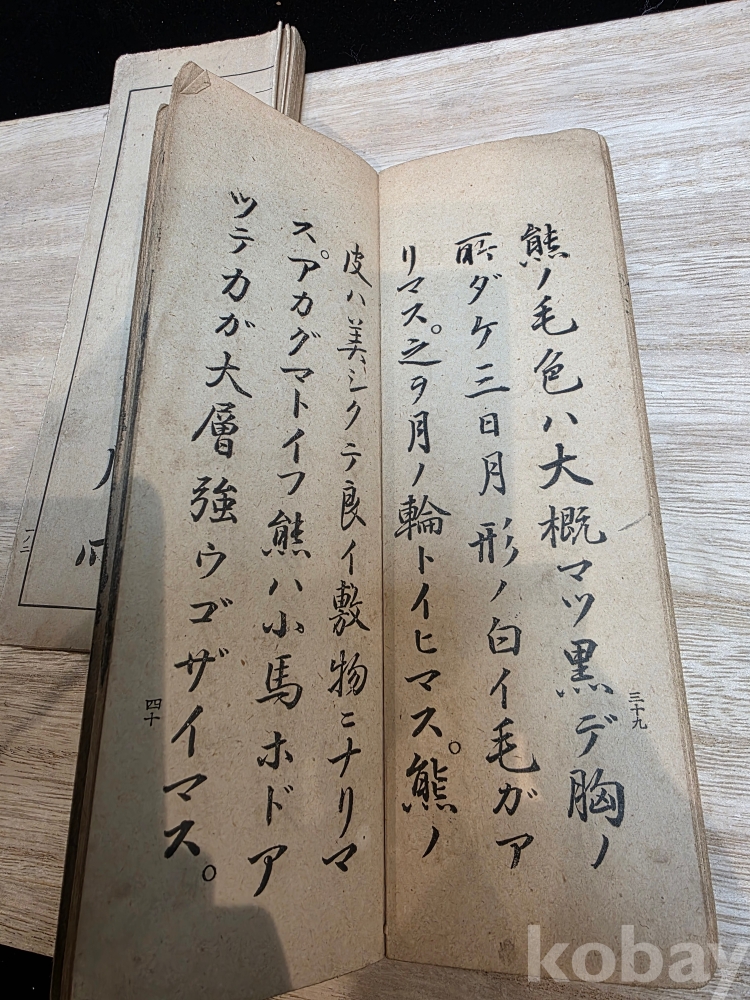 熊ノ毛色ハ大概マツ黒デ胸ノ
所ダケ三日月形ノ白イ毛ガア
リマス。之ヲ月ノ輪トイヒマス。熊ノ
三十九
皮ハ美シクテ良イ敷物ニナリマ
ス。アカグマトイフ熊ハ小馬ホドア
ツテカガ大層強ウゴザイマス。
四十
一ノ二
kobay